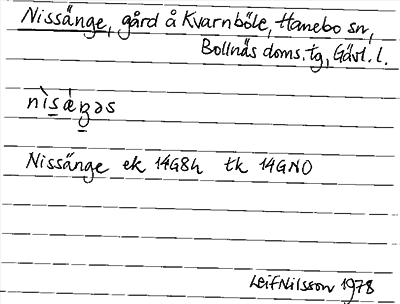 Nissänge, gård å Kvarnböle, Hanebo sn,
Bollnäs doms. tg, Gävl. l.
nìsáŋəs
Nissänge ek 14G8h tk 14GNO
Leif Nilsson 1978